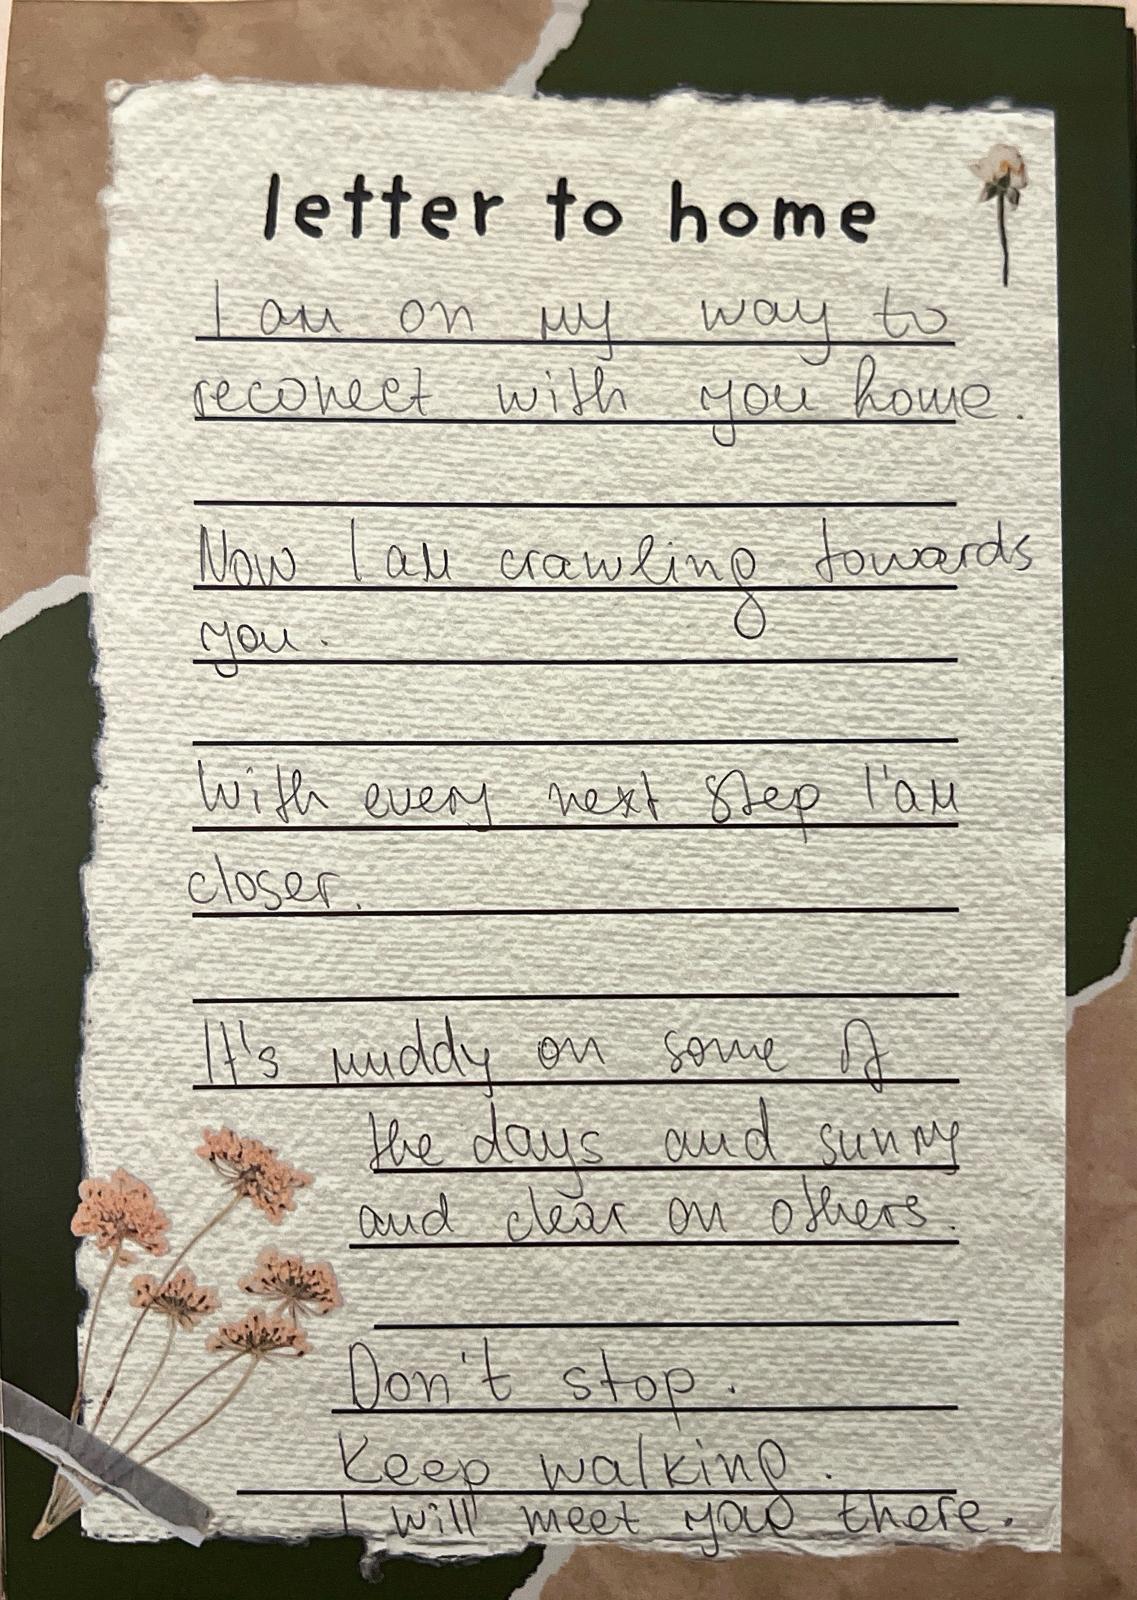 letter to home
I am on my way to
reconect with you home.
Now I am crawling towards
you.
With every next step I'am
closer.
It's muddy on some of
the days and sunny
and clear on others.
Don't stop.
Keep walking.
I will meet you there.